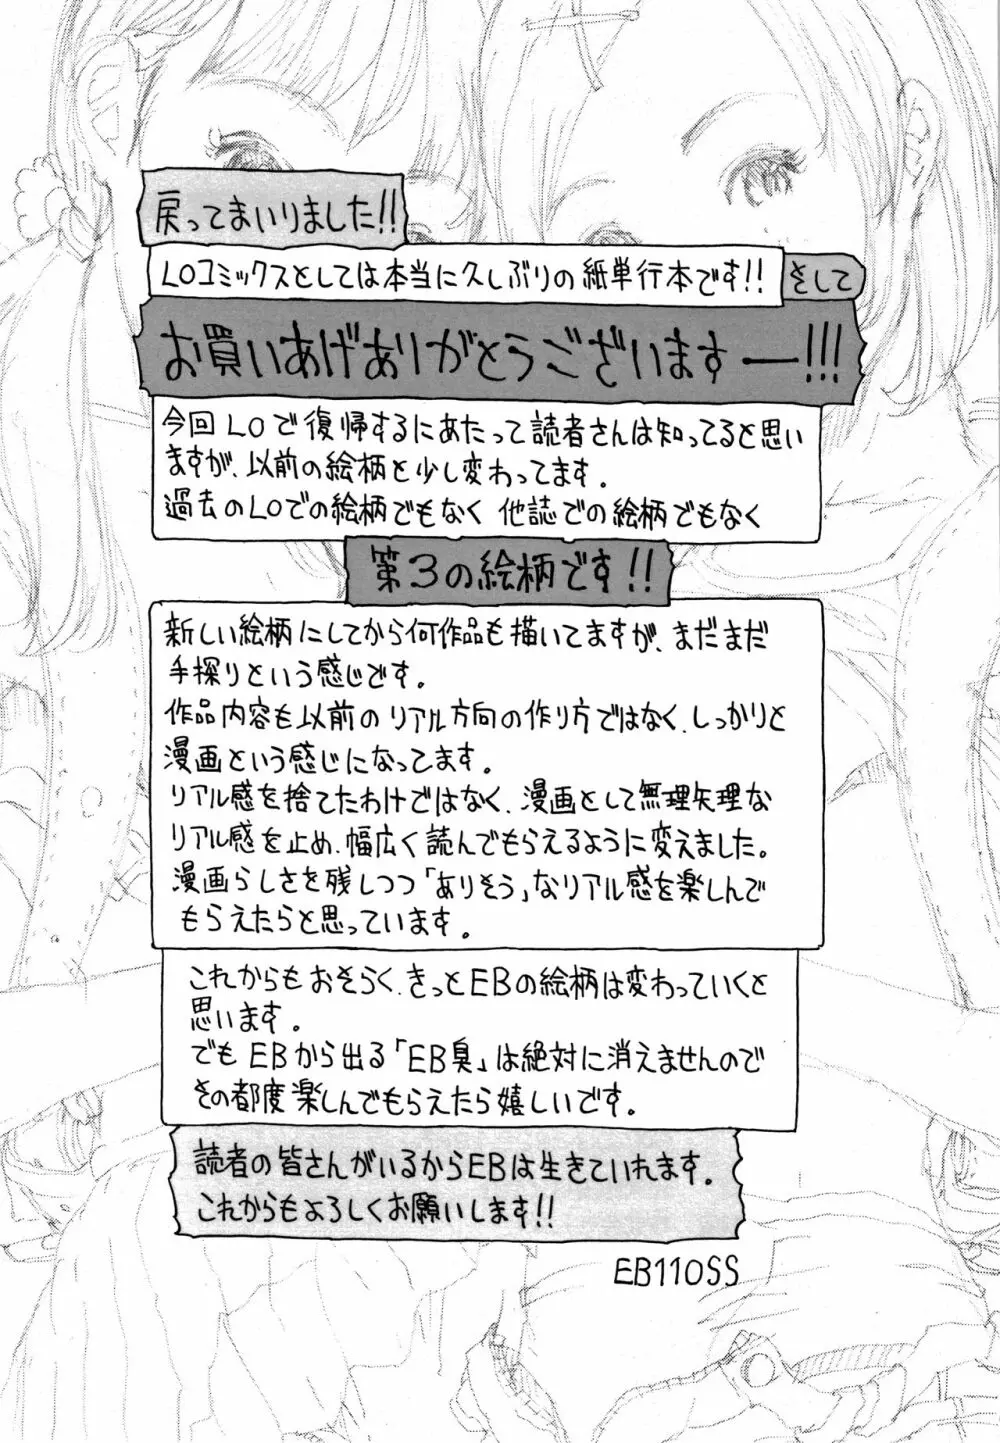 戻ってまいりました!!
LOコミックスとしては本当に久しぶりの紙単行本です!! そして
お買いあげありがとうございますー!!!
今回LOで復帰するにあたって読者さんは知ってると思い
ますが、以前の絵柄と少し変わってます。
過去のLOでの絵柄でもなく 他誌での絵柄でもなく
第3の絵柄です!!
新しい絵柄にしてから何作品も描いてますが、まだまだ
手探りという感じです。
作品内容も以前のリアル方向の作り方ではなく、しっかりと
漫画という感じになってます。
リアル感を捨てたわけではなく、漫画として無理矢理な
リアル感を止め、幅広く読んでもらえるように変えました。
漫画らしさを残しつつ「ありそう」なリアル感を楽しんで
もらえたらと思っています。
これからもおそらく、きっとEBの絵柄は変わっていくと
思います。
でもEBから出る「EB臭」は絶対に消えませんので
その都度楽しんでもらえたら嬉しいです。
読者の皆さんがいるからEBは生きていれます。
これからもよろしくお願いします!!
EB110SS